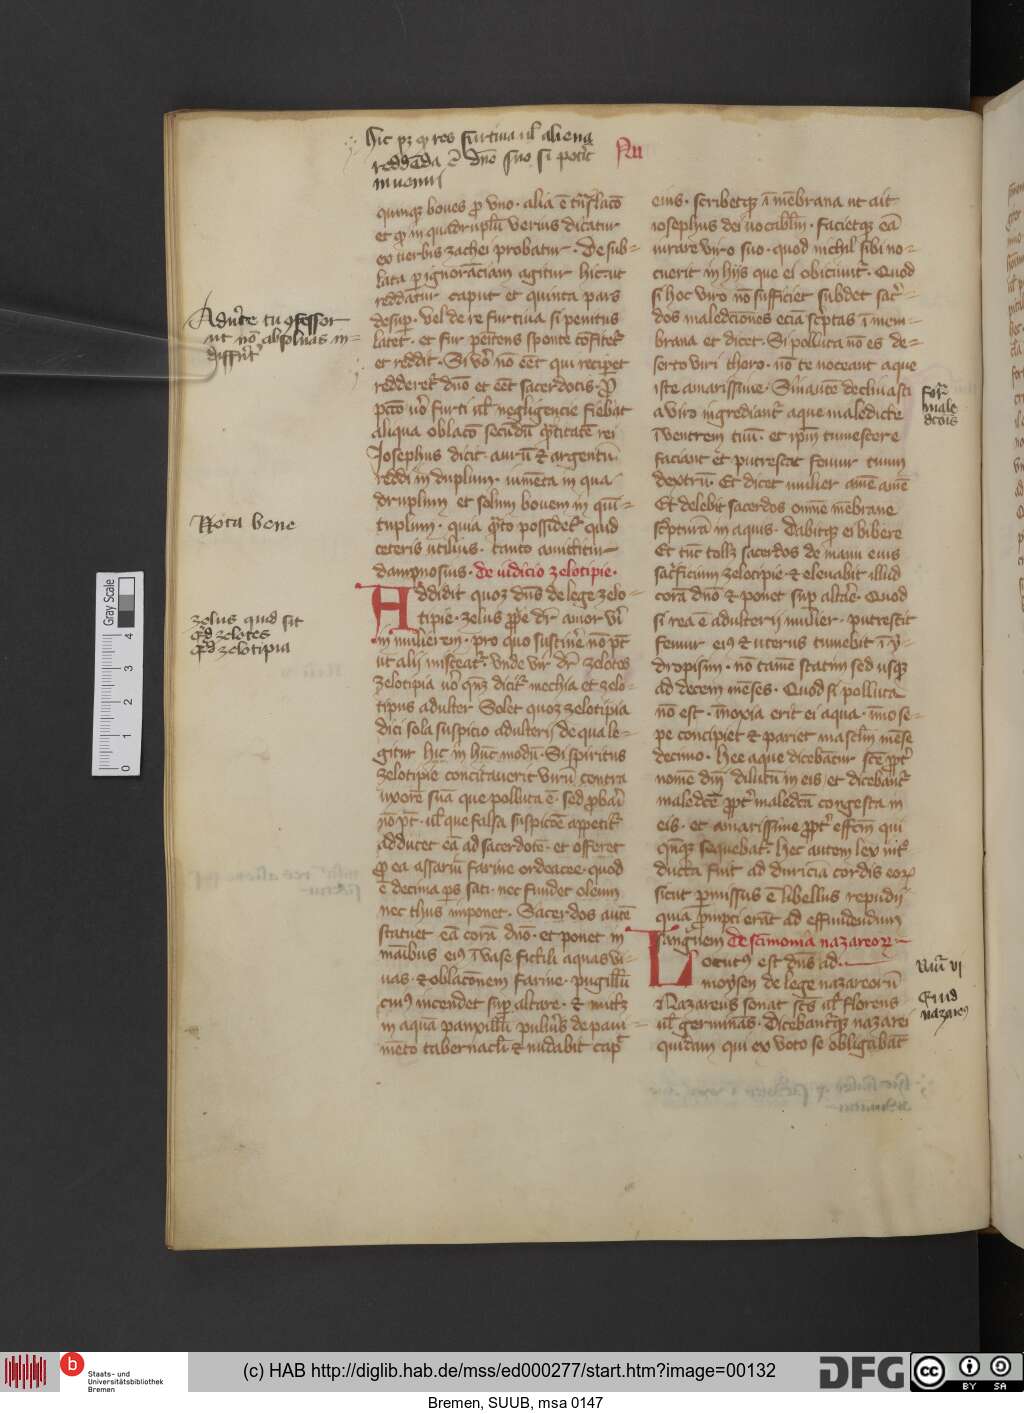 hic pꝫ ꝙ res furtiua ul᷑ aliena
reddēda ē dn̄o suo si potit᷑
inueniri
Nu
quinqꝫ boues ꝓ vno · alia ē
et ꝙ in quadruplū verius dicatur
ex uerbis zachei probatur · De sub-
lata ꝑ ignorāciam agitur hic · ut
reddātur caput et quinta pars
desuꝑ · vel de re furtiua si penitus
latet · et fur penitens sponte
et reddit · Si v̊o nō eēt qui reciꝑet
redderet᷑ dn̄o et eēt sacerdotis · ꝓ
pccō ūo furti ul᷑ negligencie fiebat
aliqua oblacō secūdū qͣntitatē rei
Josephus dicit · aurū ⁊ argentū
reddi in duplum · iumēta in qua
druplum et solum bouem in quī-
tuplum · quia qͣto possidet᷑ quid
ceteris utilius · tanto amittitur
dampnosius · de iudicio zelotipie ·
Addidit quoꝫ dn̄s de lege zelo-
tipie · zelus ꝓpͥe dr̄ amor vīri
in mulierem · pro quo sustinē nō pt̄
ut alij misceat᷑ · vnde vir dr̄ zelotes
zelotipia ūo qn̄qꝫ dicit᷑ mechia et zelo-
tipus adulter Solet quoꝫ zelotipia
dici sola suspicio adulterij de qua le-
gitur hic in hūc modū · Si spiritus
zelotipie concitauerit virū contra
uxorē suā que polluta ē · sed ꝓbari
nō pt̄ · ul᷑ que falsa suspicōe appetit᷑
adducet eā ad sacerdotē · et offeret
ꝓ ea assariū farine ordeacee · quod
ē decima ꝑs sati · nec fundet oleum
nec thus imponet · Sacerdos autē
statuet eā corā dn̄o · et ponet in
manibus eiꝰ ī vase fictili aquas vi-
uas · ⁊ oblaconem farine · pugillū
cuiꝰ incendet suꝑ altare · ⁊ mittꝫ
in aquā pauxillū pulūis de paui-
mēto tabernacl̄i ⁊ nudabit capͣ
eius · scribetqꝫ ī mēbrana ut ait
iosephus dei uocabl̄m · facietqꝫ eā
iurare viro suo · quod nichil sibi no-
cuerit in hijs que ei obiciunt᷑ · Quod
si hoc viro nō sufficiet subdet sac̄-
dos maledcīones eciā scͥptas ī mem-
brana et dicet · Si polluta nō es de-
serto viri thoro · nō te noceant aque
iste amarissime · Sinautē declinasti
a viro ingrediant᷑ aque maledicte
ī ventrem tuū · et ip̄m tumescere
faciant et putrescat femur tuum
dextrū · Et dicet mulier amē amē
Et delebit sacerdos omnē mēbrane
scͥpturā in aquis · Dabitqꝫ ei bibere
Et tūc tollꝫ sacerdos de manu eius
sacͥficium zelotipie ⁊ eleuabit illud
corā dn̄o ⁊ ponet suꝑ altāe · Quod
si rea ē adulterij mulier · putrescit
femur eiꝰ ⁊ uterus tumebit ī y-
dropisim · nō tamē statim sed usqꝫ
ad decem mēses · Quod si polluta
nō est · īnoxia erit ei aqua · īmo se-
pe concipiet ⁊ pariet mascl̄m mēse
decimo · Hee aque dicebātur scē ꝓpt᷑
nomē dn̄i dilutū in eis et dicebant᷑
maledcē ꝓpt᷑ maledcā congesta in
eis · et amarissime ꝓpt᷑ effcm̄ qui
qn̄qꝫ sequebat᷑ · Hec autem lex int᷑o
ducta fuit ad duriciā cordis eoꝝ
sicut ꝑmissus ē libellus repudij
quia ꝓmpti erāt ad effundendum
sanguinem De scīmonia nazareoꝝ
Locutꝰ est dn̄s ad
moysen de lege nazareorū
⁊ Nazareus sonat sc̄s ul᷑ florens
ul᷑ germinās · Dicebant᷑qꝫ nazarei
quidam qui ex voto se obligabāt
Aduͥte tu ꝯfessor
ut nō absoluas in-
diffēnt᷑
Nota bene
zelus quid sit
qͥd zelotes
qͥd zelotipia
For᷑
male
dcōis
Nūi vi
Quid
nazareꝰ
Gray Scale
0
1
2
3
4
b
Staats- und
Universitätsbibliothek
Bremen
(c) HAB http://diglib.hab.de/mss/ed000277/start.htm?image=00132
DFG
cc
BY
SA
Bremen, SUUB, msa 0147